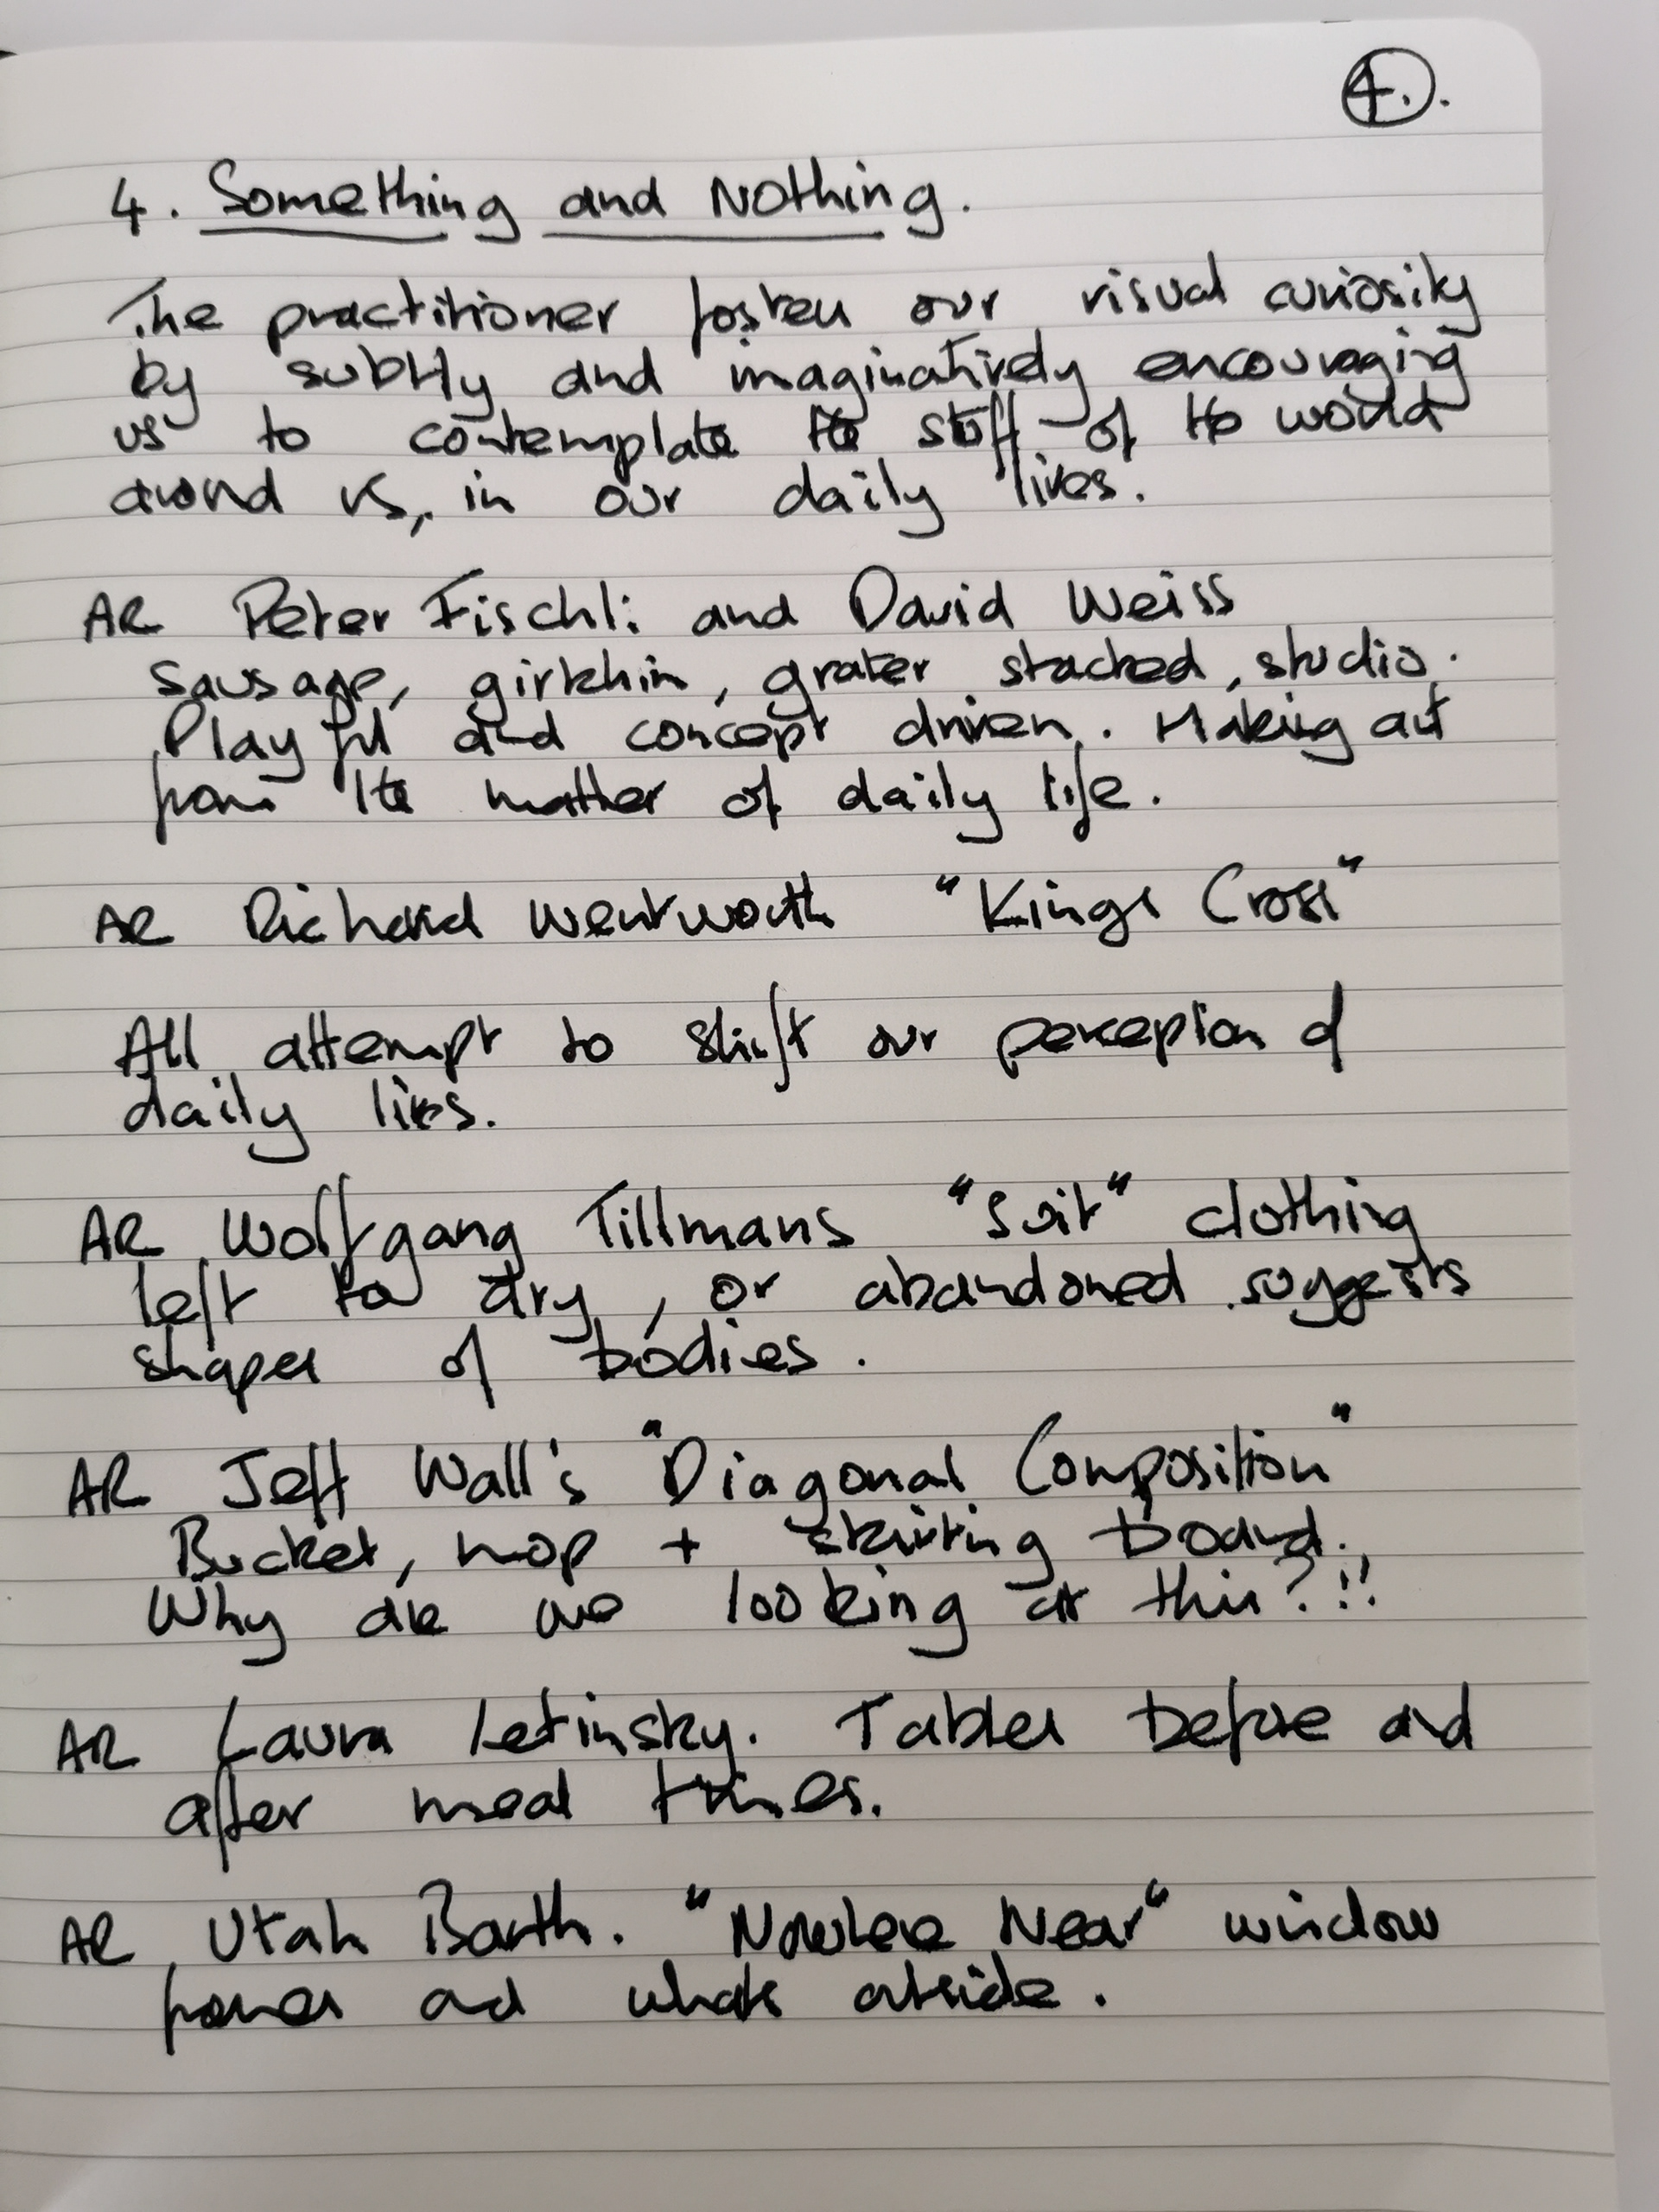 4.
4. Something and Nothing.
The practitioner fosters our visual curiosity
by subtly and imaginatively encouraging
us to contemplate the stuff of the world
around us, in our daily lives.
AR Peter Fischli and David Weiss
Sausage, girkhin, grater stacked, studio.
Playful and concept driven. Making art
from the matter of daily life.
AR Richard Wentworth "Kings Cross"
All attempt to shift our perception of
daily lives.
AR Wolfgang Tillmans "Suit" clothing
left to dry, or abandoned suggests
shapes of bodies.
AR Jeff Wall's "Diagonal Composition"
Bucket, mop + skirting board.
Why are we looking at this?!!
AR Laura Letinsky. Tables before and
after meal times.
AR Utah Barth. "Nowhere Near" window
frames and whats outside.